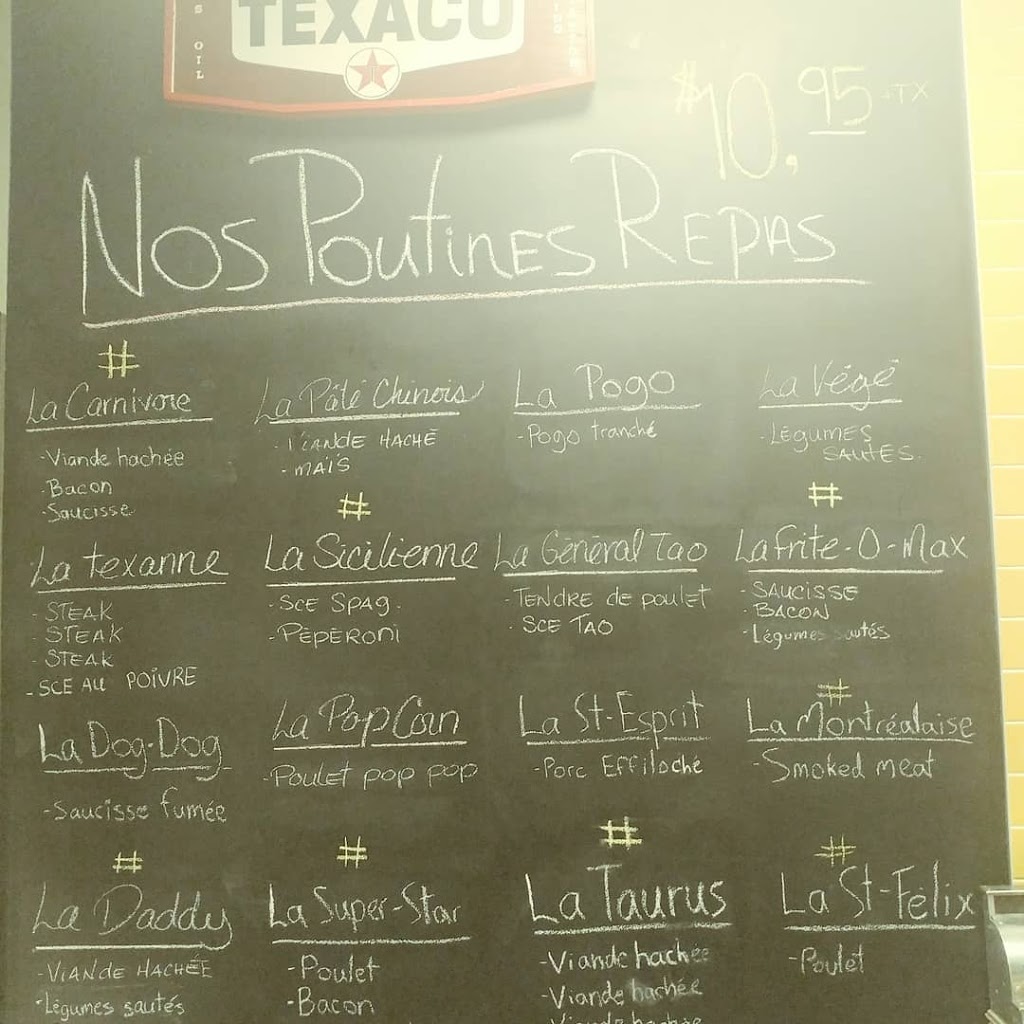 TEXACO
S OIL
$10,95 +TX
Nos Poutines Repas
#
La Carnivore
- Viande hachée
- Bacon
- Saucisse
La Pâté Chinois
- VIANDE HACHÉ
- MAÏS
La Pogo
- Pogo tranché
La Végé
- Légumes
SAUTÉS
La texanne
- STEAK
- STEAK
- STEAK
- SCE AU POIVRE
#
La Sicilienne
- SCE SPAG.
- PÉPÉRONI
La Général Tao
- TENDRE de poulet
- SCE TAO
#
La frite-O-Max
- SAUCISSE
- BACON
- Légumes sautés
La Dog-Dog
- Saucisse fumée
La Pop Corn
- Poulet pop pop
La St-Esprit
- Porc Effiloché
#
La Montréalaise
- Smoked meat
#
La Daddy
- VIANDE HACHÉE
- Légumes sautés
#
La Super-Star
- Poulet
- Bacon
#
La Taurus
- Viande hachée
- Viande hachée
- Viande hachée
#
La St-Félix
- Poulet